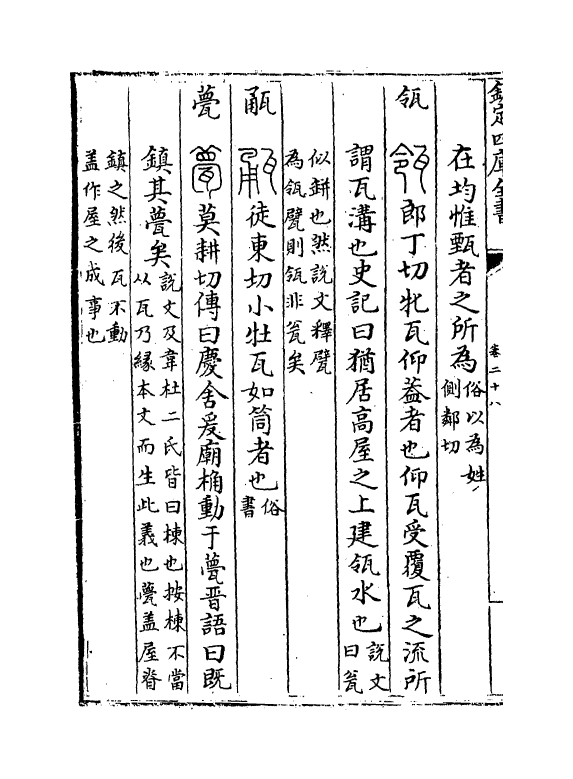 欽定四庫全書
卷二十八
在均惟甄者之所為俗以為姓
側鄰切
瓴 瓴 郎丁切牝瓦仰葢者也仰瓦受覆瓦之流所
謂瓦溝也史記曰猶居高屋之上建瓴水也説文
曰瓮
似缾也然説文釋甓
為瓴甓則瓴非瓮矣
㼧 㼧 徒東切小牡瓦如筒者也俗
書
甍 甍 莫耕切傳曰慶舍爰廟桷動于甍晉語曰既
鎮其甍矣説文及韋杜二氏皆曰棟也按棟不當
从瓦乃緣本文而生此義也甍盖屋脊
鎮之然後瓦不動
盖作屋之成事也